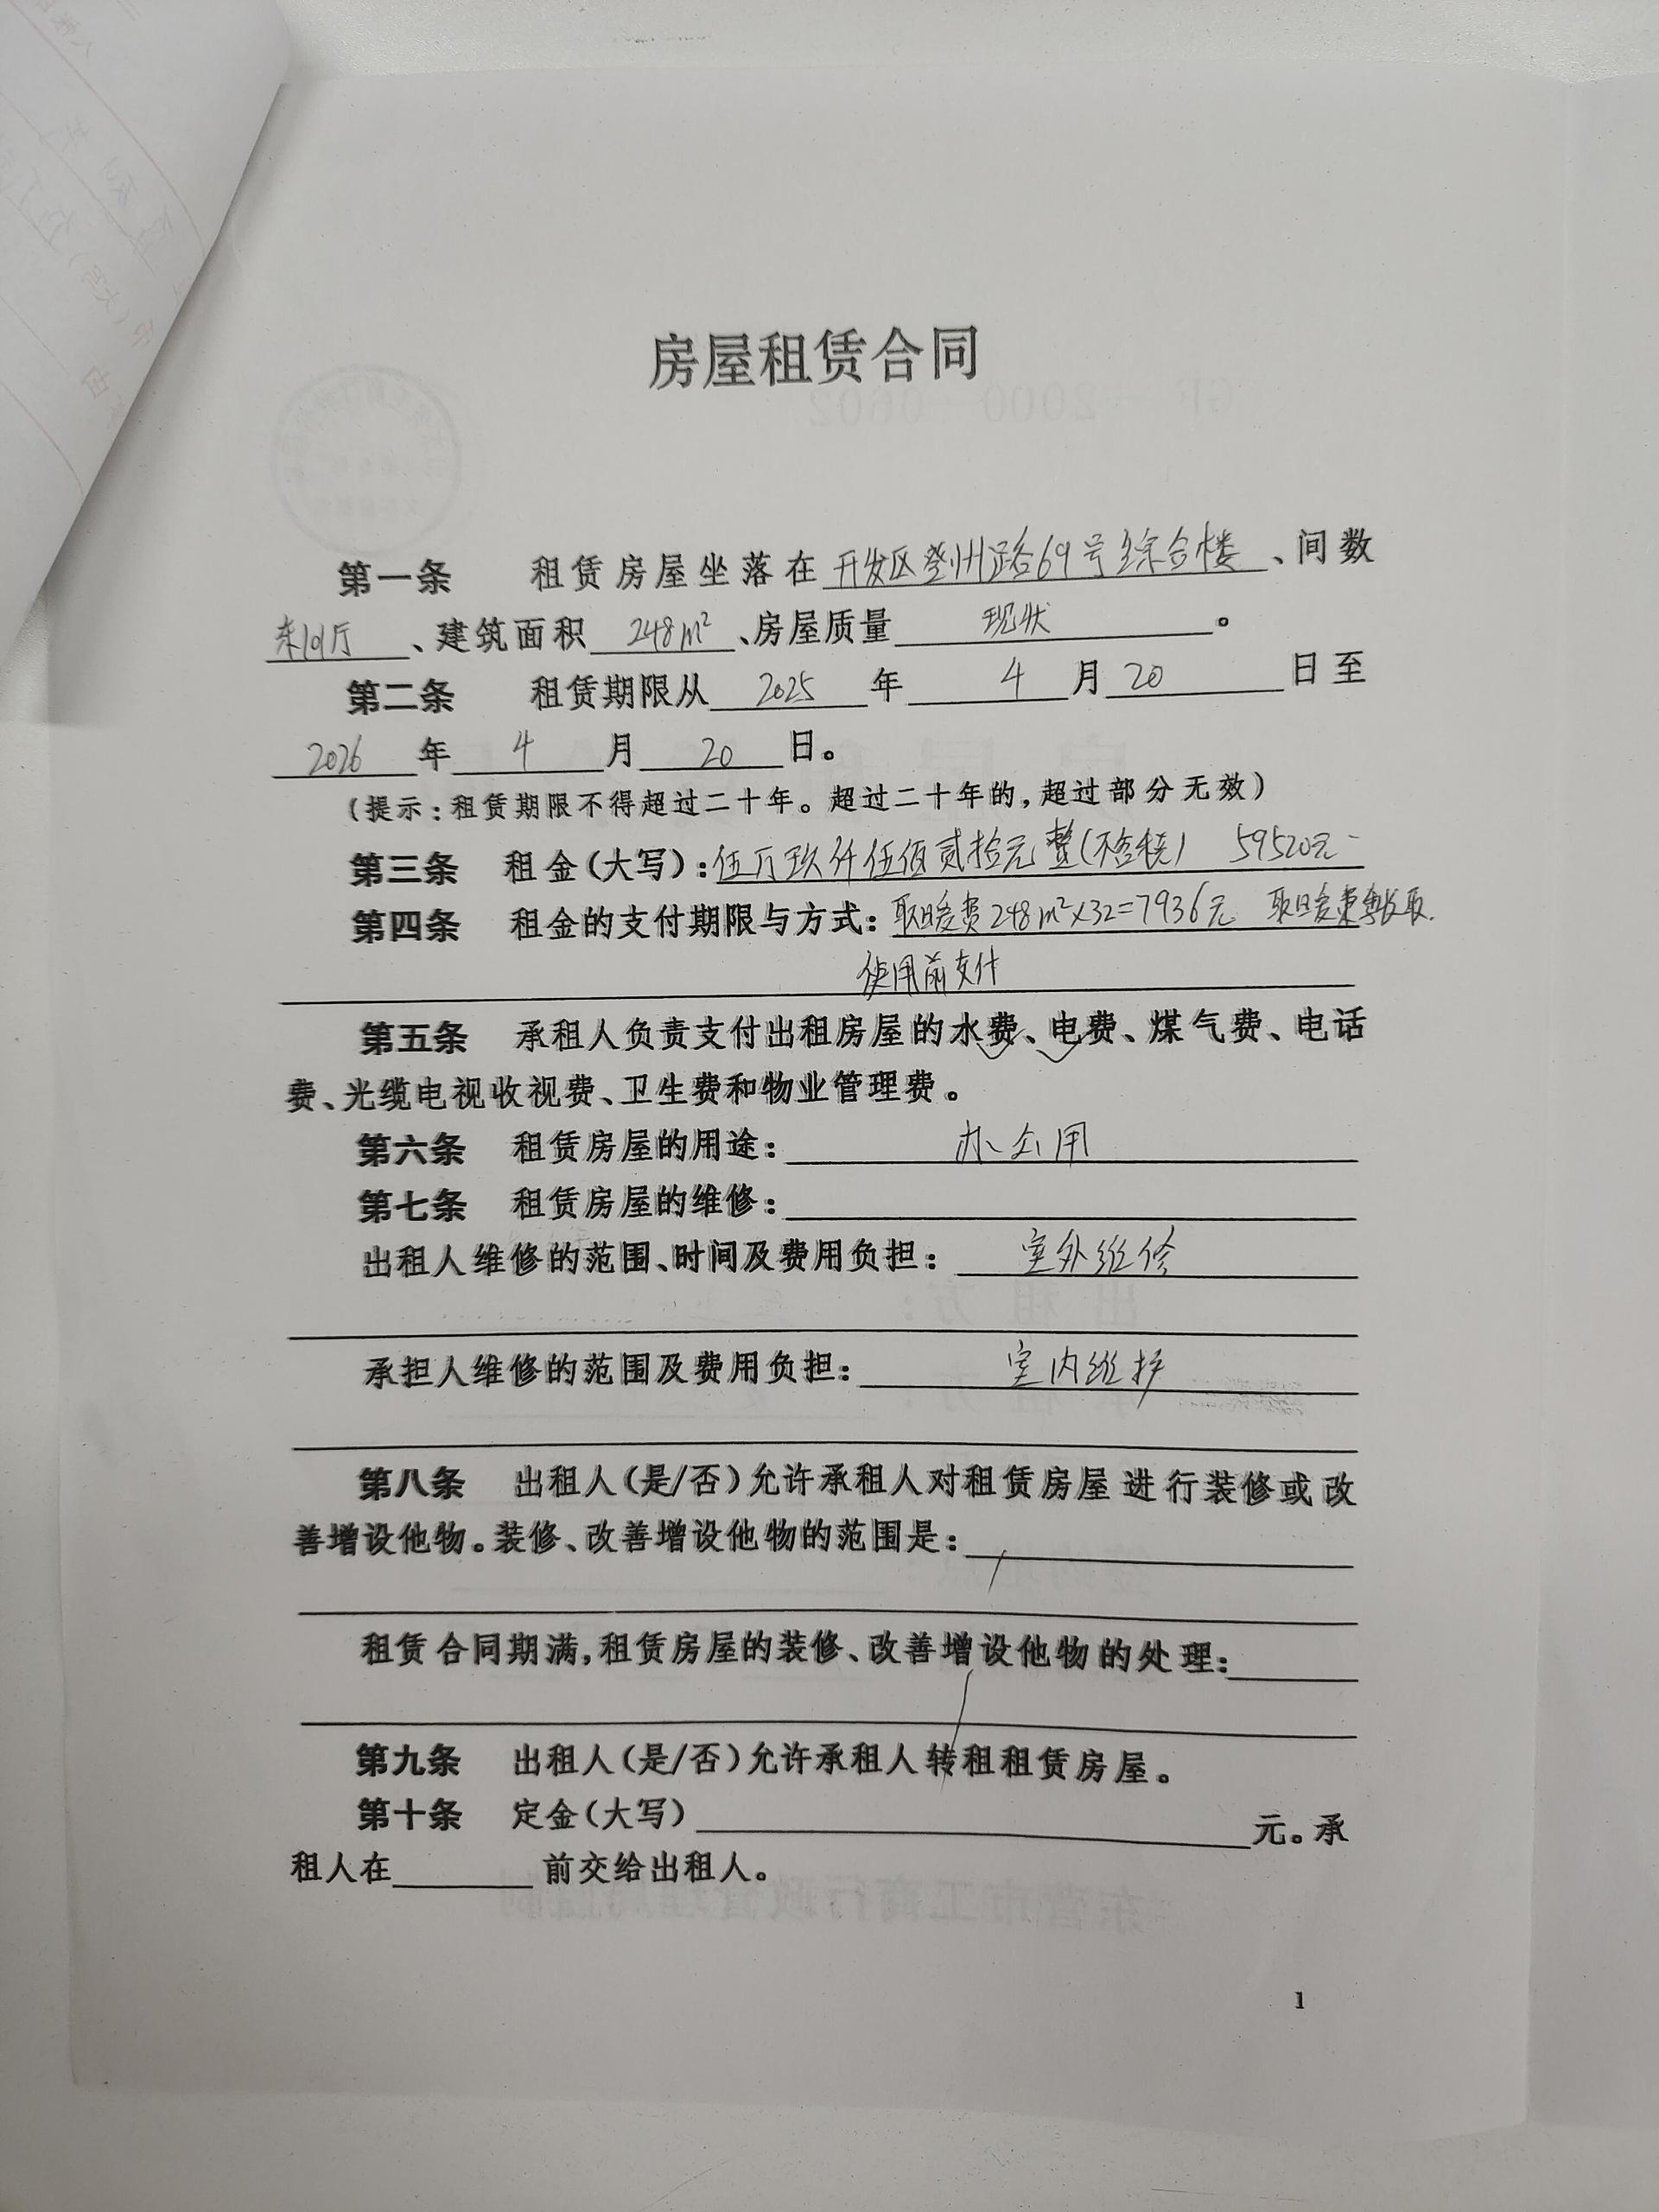 房屋租赁合同
第一条 租赁房屋坐落在 开发区登州路69号综合楼 、间数
东1间厅 、建筑面积 248m² 、房屋质量 现状 。
第二条 租赁期限从 2025 年 4 月 20 日至
2026 年 4 月 20 日。
(提示:租赁期限不得超过二十年。超过二十年的,超过部分无效)
第三条 租金(大写):伍万玖仟伍佰贰拾元整(不含税) 59520元
第四条 租金的支付期限与方式:取暖费248m²×32=7936元 取暖费
使用前支付
第五条 承租人负责支付出租房屋的水费、电费、煤气费、电话
费、光缆电视收视费、卫生费和物业管理费。
第六条 租赁房屋的用途: 办公用
第七条 租赁房屋的维修:
出租人维修的范围、时间及费用负担: 室外维修
承担人维修的范围及费用负担: 室内维护
第八条 出租人(是/否)允许承租人对租赁房屋进行装修或改
善增设他物。装修、改善增设他物的范围是: /
租赁合同期满,租赁房屋的装修、改善增设他物的处理: /
第九条 出租人(是/否)允许承租人转租租赁房屋。
第十条 定金(大写) 元。承
租人在 前交给出租人。
1